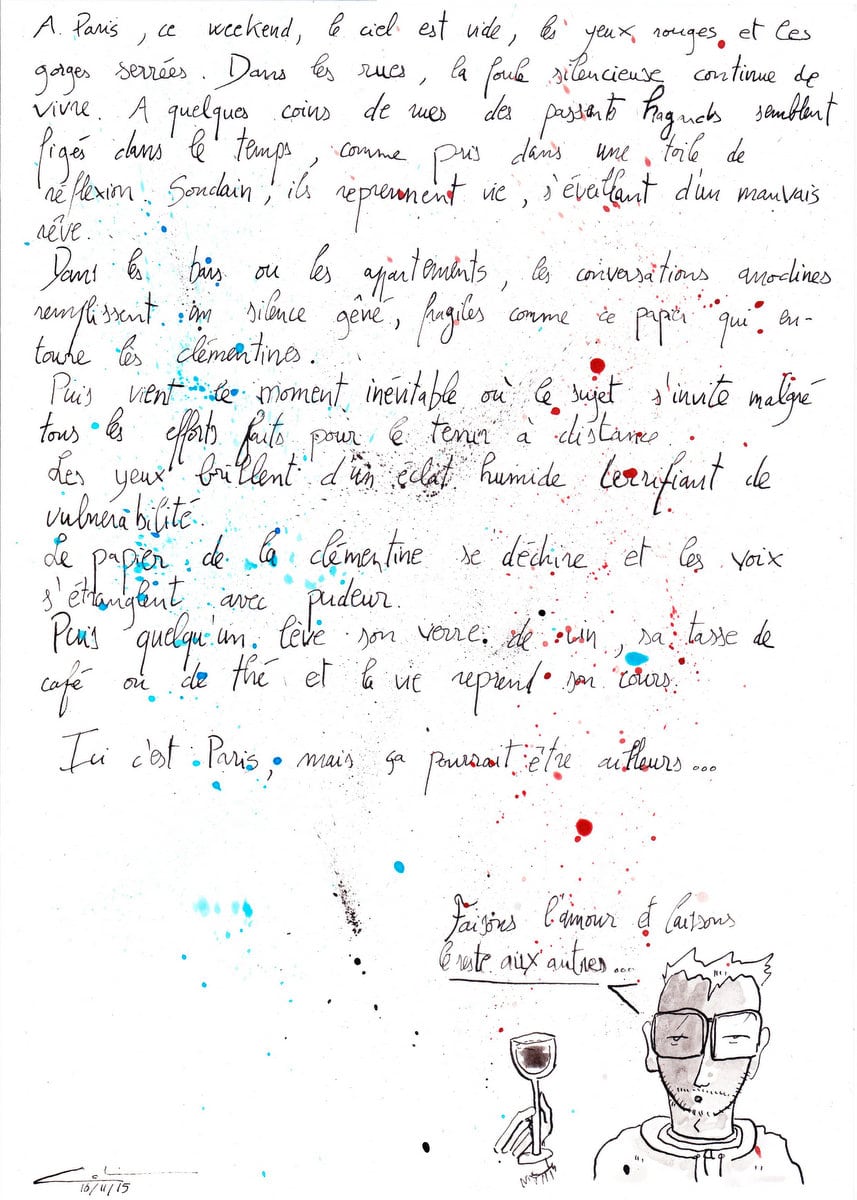 A Paris, ce weekend, le ciel est vide, les yeux rouges et les
gorges serrées. Dans les rues, la foule silencieuse continue de
vivre. A quelques coins de rues des passants hagards semblent
figés dans le temps, comme pris dans une toile de
réflexion. Soudain, ils reprennent vie, s'éveillant d'un mauvais
rêve.
Dans les bars ou les appartements, les conversations anodines
remplissent un silence gêné, fragiles comme ce papier qui en-
toure les clémentines.
Puis vient le moment inévitable où le sujet s'invite malgré
tous les efforts faits pour le tenir à distance.
Les yeux brillent d'un éclat humide terrifiant de
vulnérabilité.
Le papier de la clémentine se déchire et les voix
s'étranglent avec pudeur.
Puis quelqu'un lève son verre de vin, sa tasse de
café ou de thé et la vie reprend son cours.
Ici c'est Paris, mais ça pourrait être ailleurs...
Faisons l'amour et laissons
le reste aux autres...
16/11/15